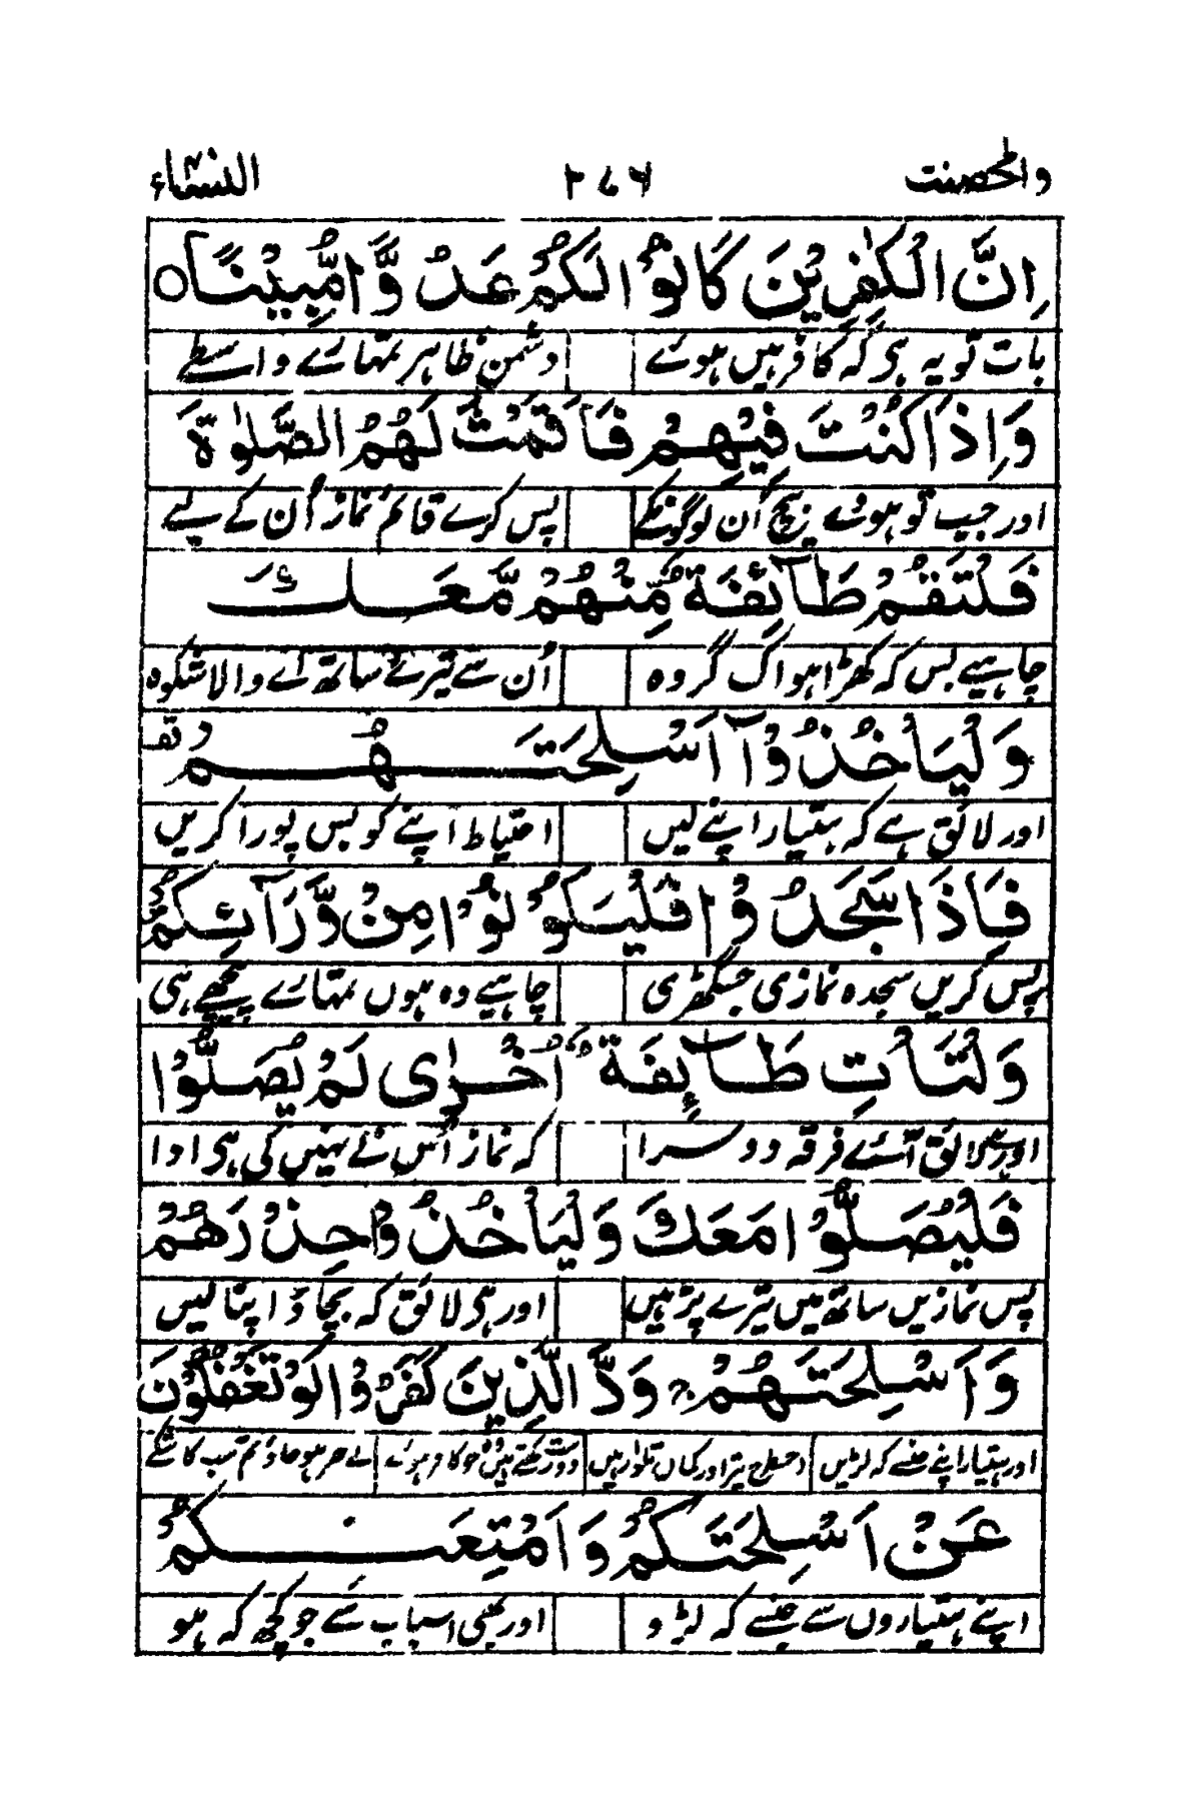 والمحصنت ۲۷۶ النساء
اِنَّ الْكٰفِرِيْنَ كَانُوْا لَكُمْ عَدُوًّا مُّبِيْنًا ○
بات تو یہ ہی کہ کافر ہیں ہوئے دشمن ظاہر تمہارے واسطے
وَاِذَا كُنْتَ فِيْهِمْ فَاَقَمْتَ لَهُمُ الصَّلٰوةَ
اور جب تو ہووے بیچ اُن لوگونکے پس کرے قائم نماز اُن کے لیے
فَلْتَقُمْ طَآئِفَةٌ مِّنْهُمْ مَّعَكَ
چاہیے بس کہ کھڑا ہو اک گروہ اُن سے تیرے ساتھ اے والا شکوہ
وَلْيَاْخُذُوْٓا اَسْلِحَتَهُمْ
اور لائق ہے کہ ہتیار اپنے لیں احتیاط اپنے کو بس پورا کریں
فَاِذَا سَجَدُوْا فَلْيَكُوْنُوْا مِنْ وَّرَآئِكُمْ
پس کریں سجدہ نمازی جس گھڑی چاہیے وہ ہوں تمہارے پیچھے ہی
وَلْتَاْتِ طَآئِفَةٌ اُخْرٰى لَمْ يُصَلُّوْا
اور ہی لائق آئے فرقہ دوسرا کہ نماز اُس نے نہیں کی ہی ادا
فَلْيُصَلُّوْا مَعَكَ وَلْيَاْخُذُوْا حِذْرَهُمْ
پس نمازیں ساتھ میں تیرے پڑہیں اور ہی لائق کہ بچاؤ اپنا لیں
وَاَسْلِحَتَهُمْ وَدَّ الَّذِيْنَ كَفَرُوْا لَوْ تَغْفُلُوْنَ
اور ہتیار اپنے جنسے کہ لڑیں دوست رکھتے ہیں جو کافر ہوئے
عَنْ اَسْلِحَتِكُمْ وَاَمْتِعَتِكُمْ
اپنے ہتیاروں سے جنسے کہ لڑو اور بھی اسباب سے جو کچھ کہ ہو